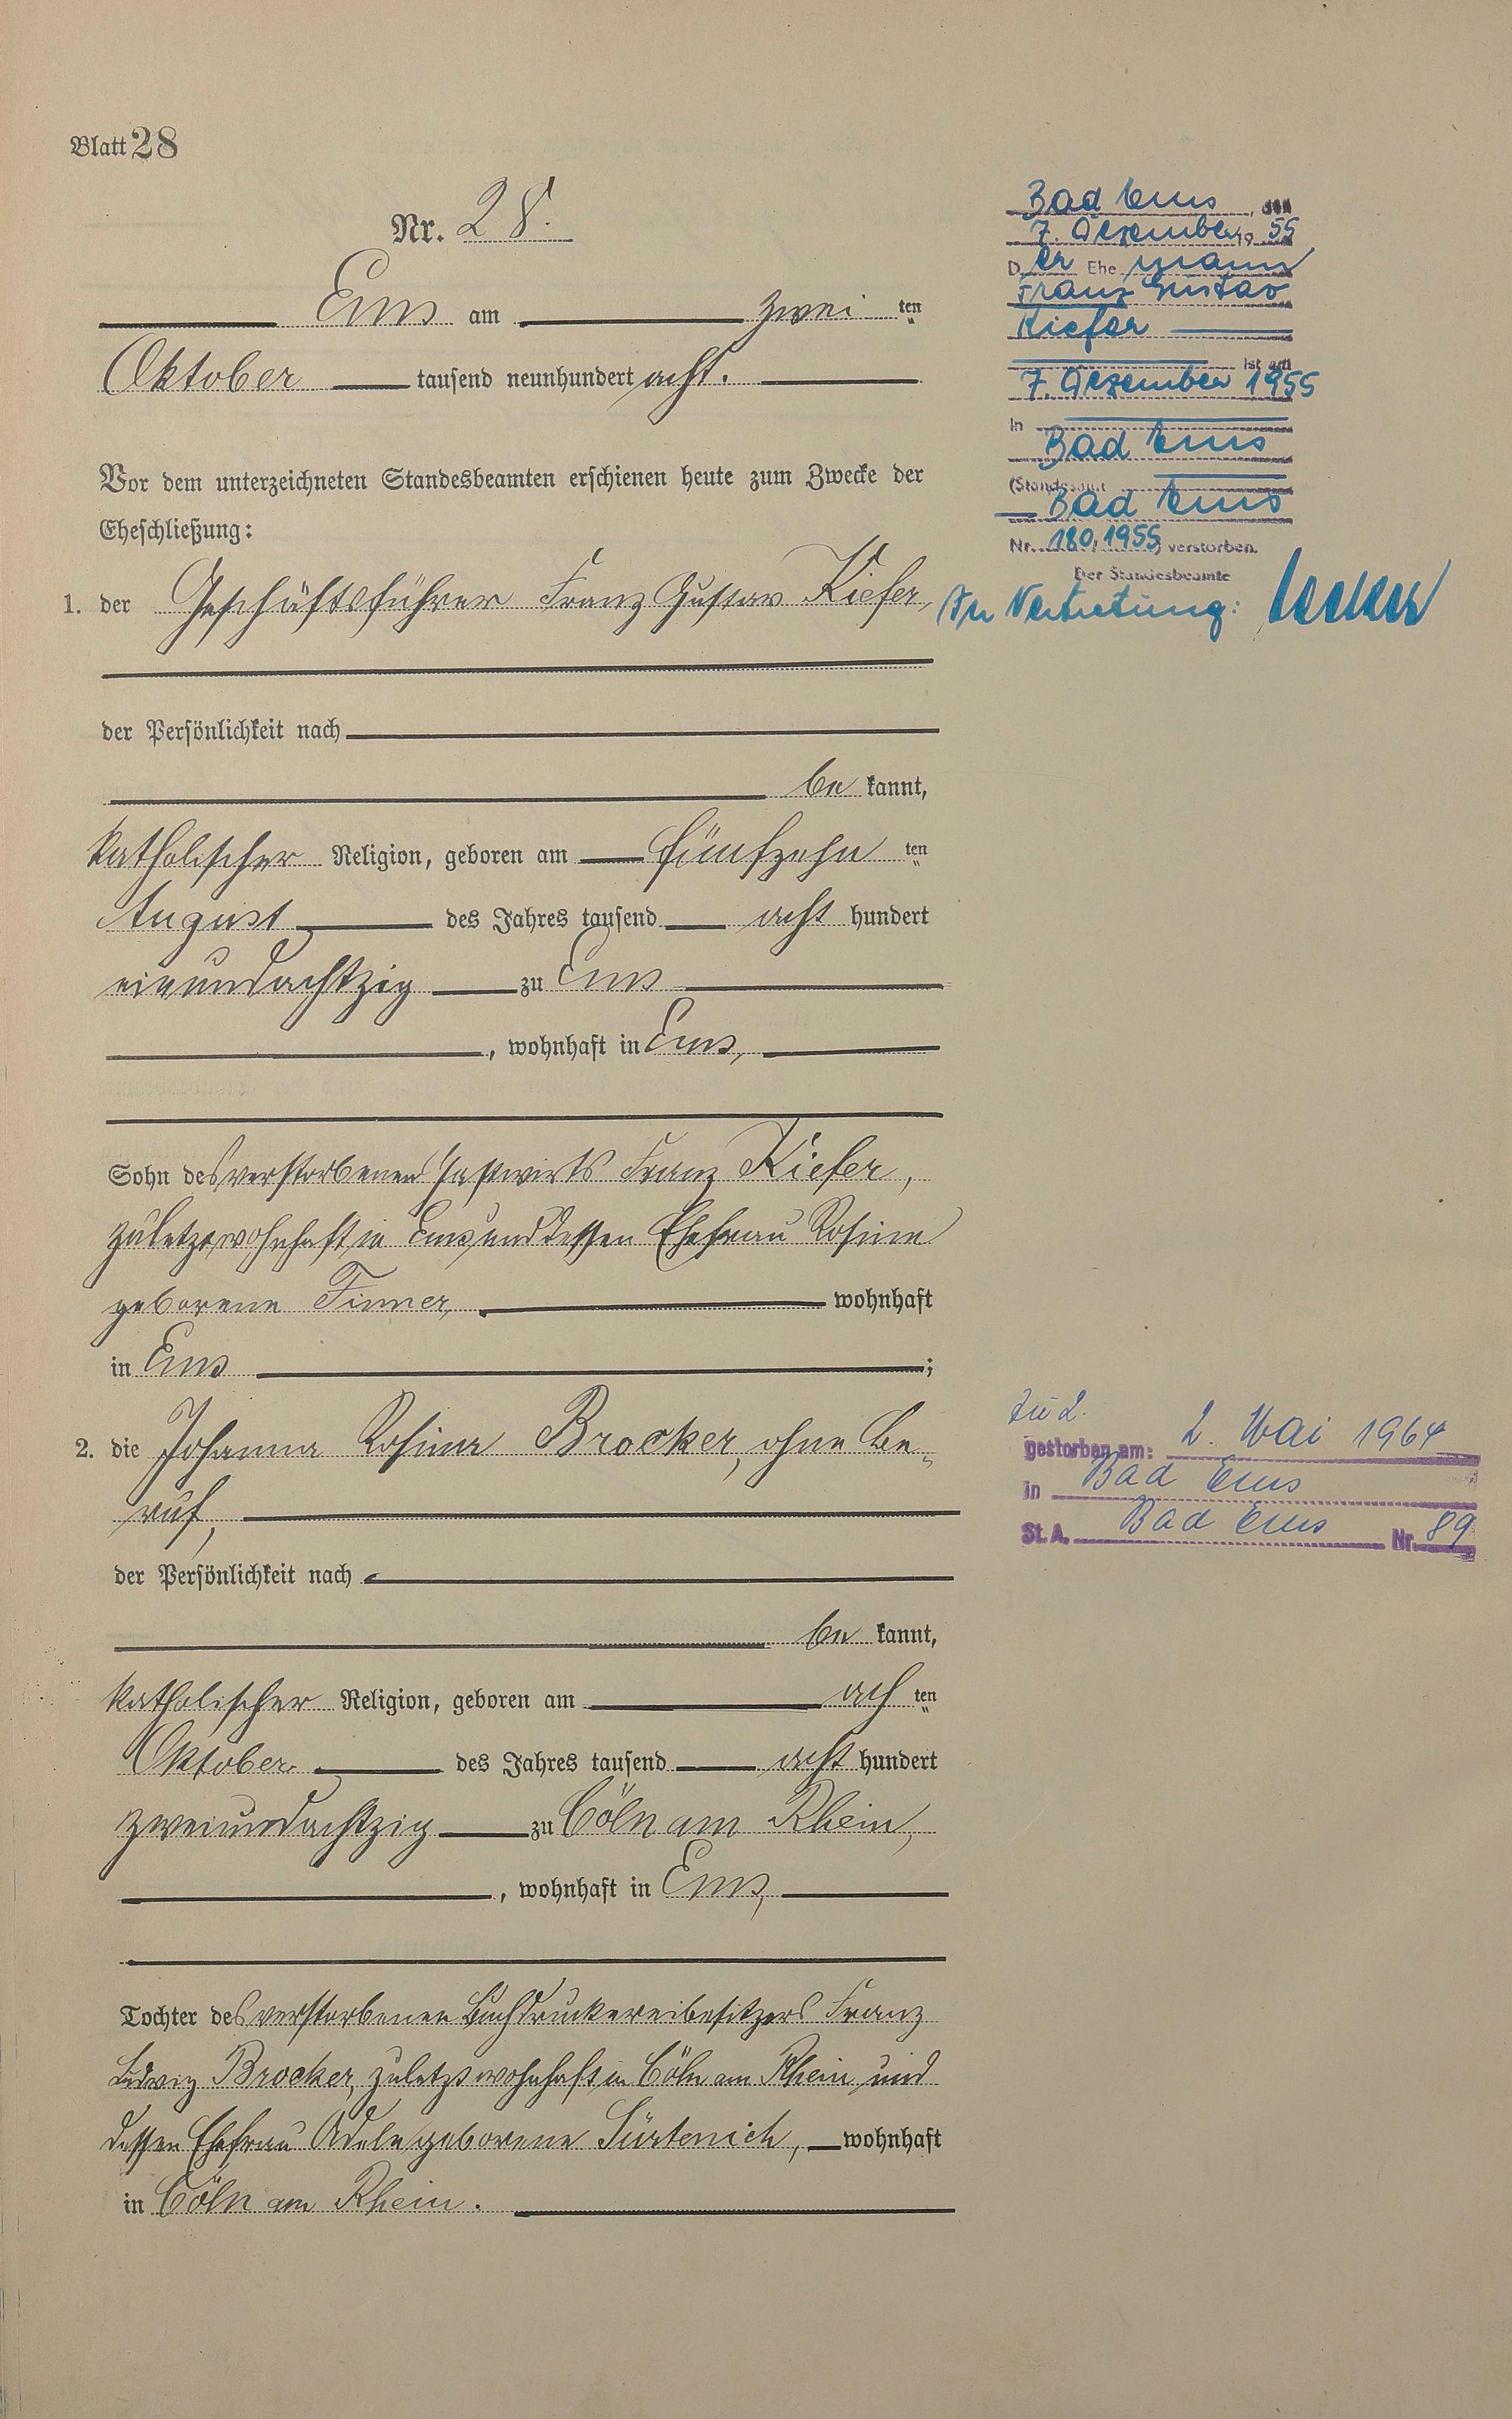 Blatt 28
Nr. 28.
Ems am zwei ten
Oktober tausend neunhundert acht.
Vor dem unterzeichneten Standesbeamten erschienen heute zum Zwecke der
Eheschließung:
1. der Geschäftsführer Franz Gustav Kiefer,
der Persönlichkeit nach
be kannt,
katholischer Religion, geboren am fünfzehn ten
August des Jahres tausend acht hundert
einundachtzig zu Ems
, wohnhaft in Ems,
Sohn des verstorbenen Gastwirts Franz Kiefer,
zuletzt wohnhaft in Ems und dessen Ehefrau Rosine
geborene wohnhaft
in Ems ;
2. die Johanna Rosina Brocker, ohne Be-
ruf,
der Persönlichkeit nach
be kannt,
katholischer Religion, geboren am ach ten
Oktober des Jahres tausend acht hundert
zweiundachtzig zu Cöln am Rhein,
, wohnhaft in Ems,
Tochter des verstorbenen Buchdruckereibesitzers Franz
Ludwig Brocker, zuletzt wohnhaft in Cöln am Rhein und
dessen Ehefrau Adele geborene Sürtenich, wohnhaft
in Cöln am Rhein.
Bad Ems, den
7. Dezember 19 55
D er Ehe mann
Franz Gustav
Kiefer
ist am
7. Dezember 1955
in
Bad Ems
(Standesamt
Bad Ems
Nr. 180/1955) verstorben.
Der Standesbeamte
In Vertretung:
Zu 2.
gestorben am: 2. Mai 1964
in Bad Ems
St. A. Bad Ems Nr. 89